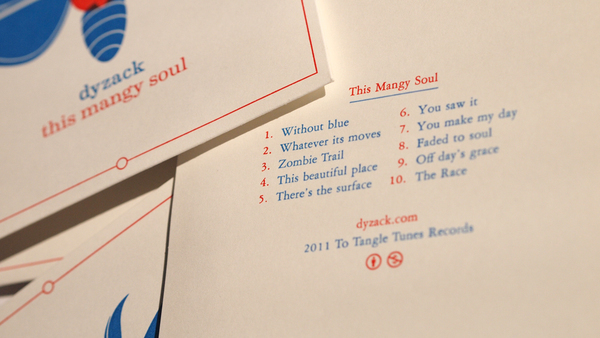 dyzack
this mangy soul
This Mangy Soul
1. Without blue
2. Whatever its moves
3. Zombie Trail
4. This beautiful place
5. There's the surface
6. You saw it
7. You make my day
8. Faded to soul
9. Off day's grace
10. The Race
dyzack.com
2011 To Tangle Tunes Records